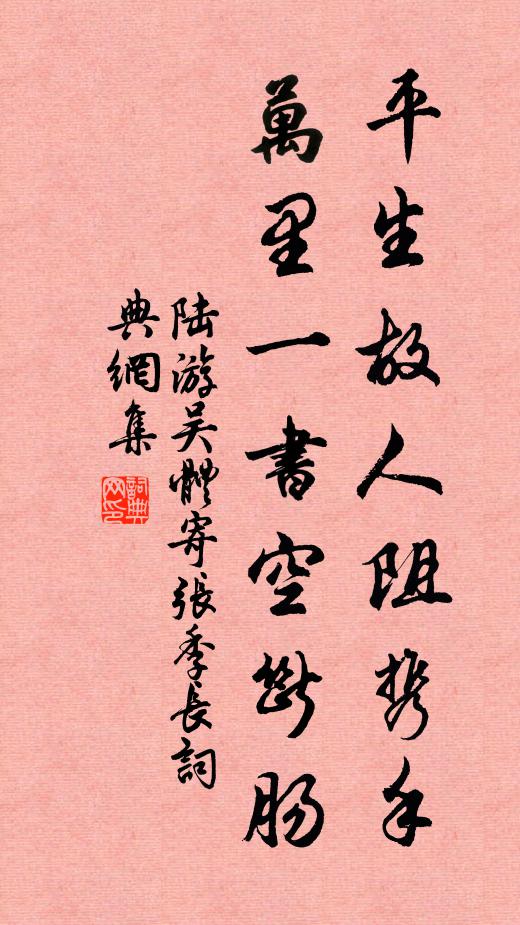 平生故人阻携手
萬里一書空斷腸
陸游吴體寄張季長詞
典網集
詞典網印